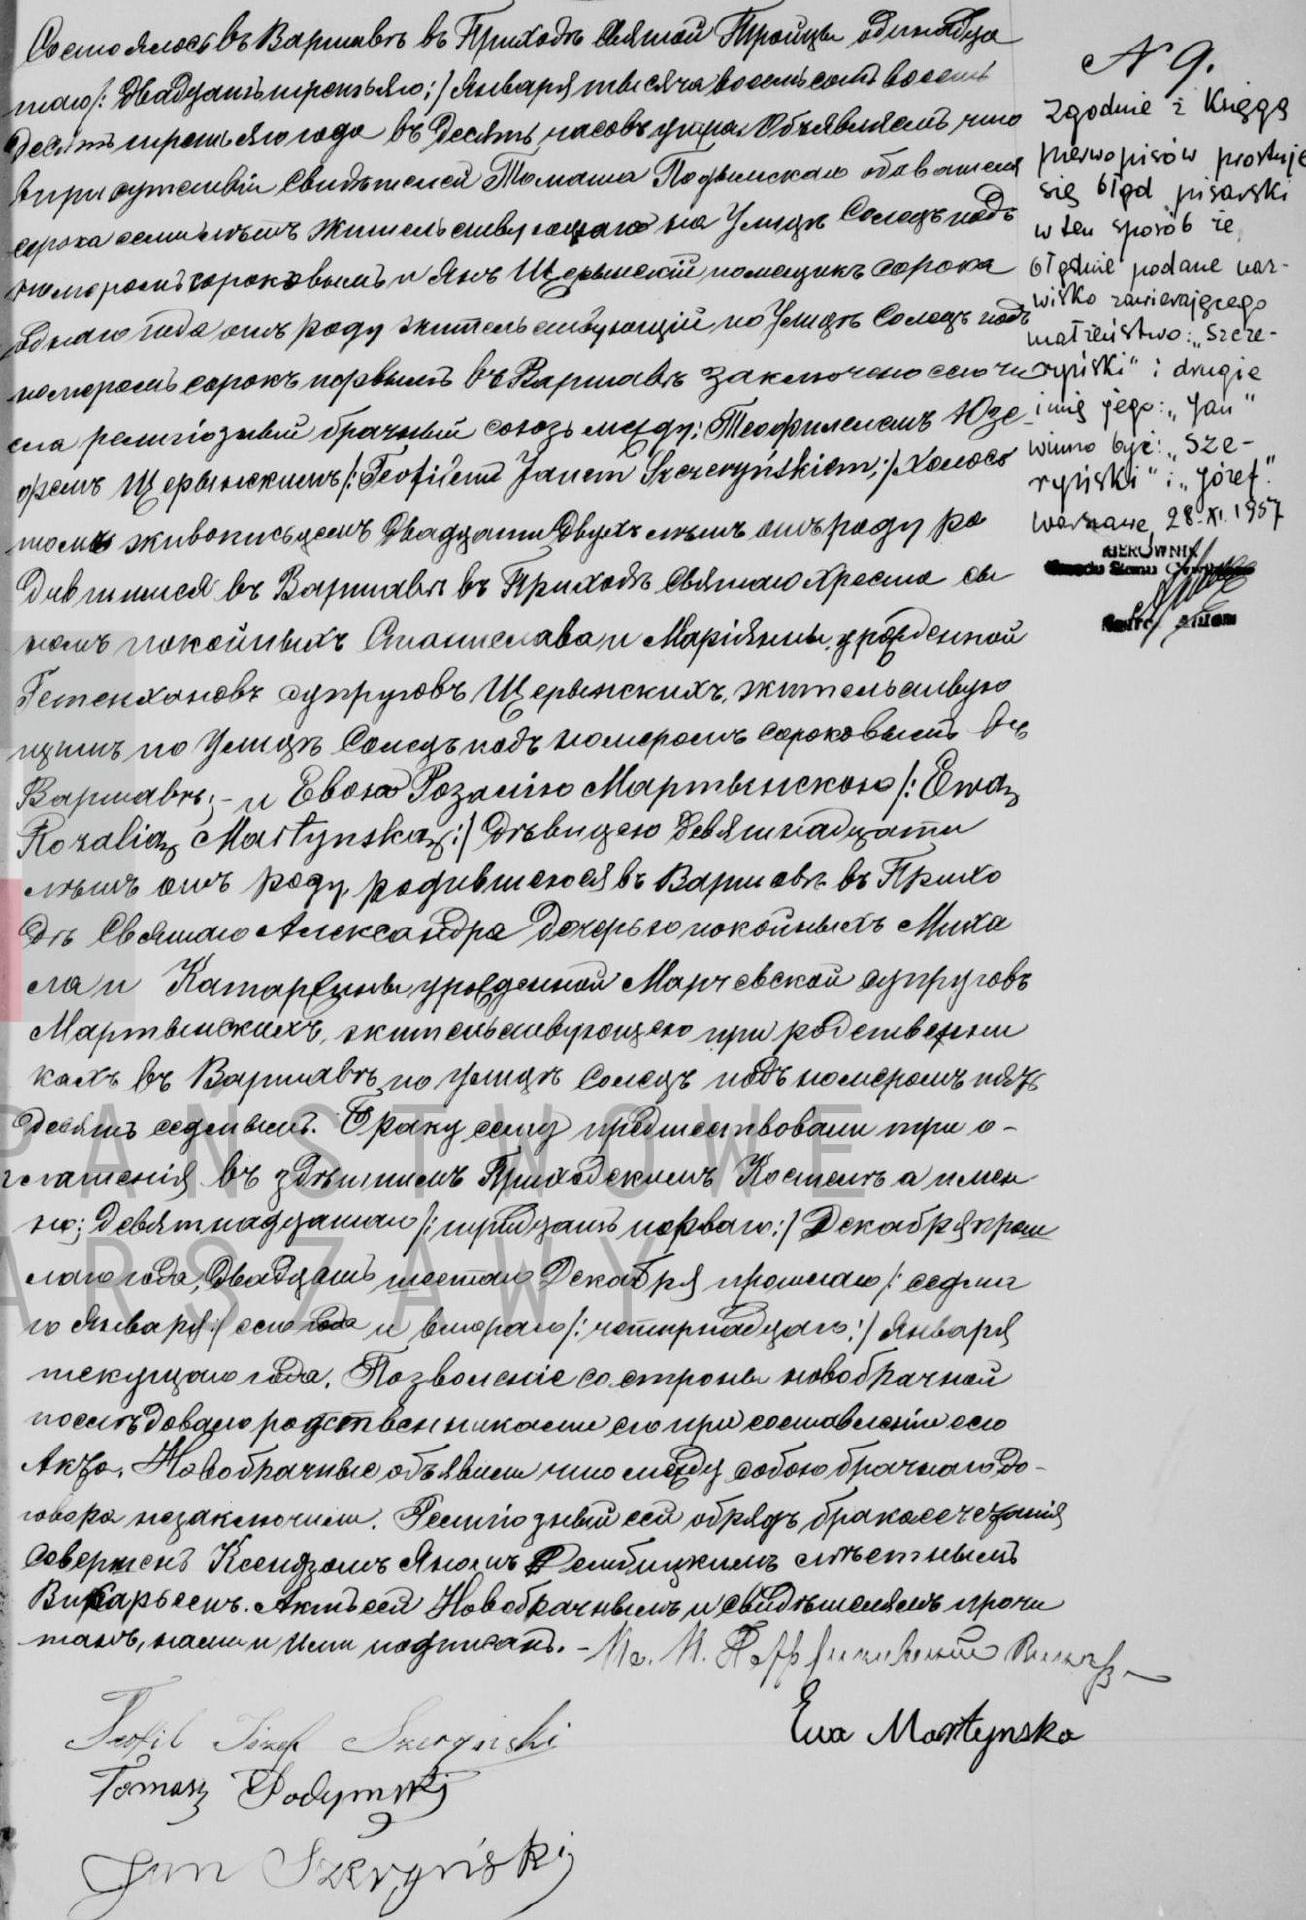 Состоялось въ Варшавѣ въ Приходѣ Святой Троицы одинадца
таго /: двадцать третьяго :/ Января тысяча восемьсотъ восемь
десятъ третьяго года въ десять часовъ утра. Объявляемъ что
въ присутствіи свидѣтелей Томаша Подымскаго обывателя
сорока семи лѣтъ жительствующаго на Улицѣ Солецъ подъ
номеромъ сороковымъ и Янъ Щерынскій помощикъ сорока
однаго года отъ роду жительствующій по Улицѣ Солецъ подъ
номеромъ сорокъ первымъ въ Варшавѣ заключено сего чи
сла религіозный брачный союзъ между: Теофилемъ Юзе
фемъ Щерынскимъ /: Teofilem Janem Szczeryńskiem :/ холос
тымъ живописьцемъ двадцати двухъ лѣтъ отъ роду ро
дившимся въ Варшавѣ въ Приходѣ Святаго Креста сы
номъ покойныхъ Станислава и Маріянны урожденной
супруговъ Щерынскихъ, жительствую
щимъ по Улицѣ Солецъ подъ номеромъ сороковымъ въ
Варшавѣ; - и Евою Розалію Мартынскою /: Ewą
Rozalią Martynską :/ дѣвицею девятнадцати
лѣтъ отъ роду, родившеюся въ Варшавѣ въ Прихо
дѣ Святаго Александра дочерью покойныхъ Миха
ла и Катаржины урожденной Марчевской супруговъ
Мартынскихъ, жительствующею при родственни
кахъ въ Варшавѣ по Улицѣ Солецъ подъ номеромъ пять
десятъ седьмымъ. Браку сему предшествовали три о-
глашенія въ здѣшнемъ Приходскомъ Костелѣ а имен
но; девятнадцатаго /: тридцать перваго :/ Декабря прош
лаго года, двадцать шестаго Декабря прошлаго /: седьма
го Января :/ сего года и втораго /: четырнадцаго :/ Января
текущаго года. Позволеніе со стороны новобрачной
послѣдовало родственниками его при составленіи сего
Акта. Новобрачные объявили что между собою брачнаго до-
говора незаключили. Религіозный сей обрядъ бракосочетанія
совершенъ Ксендзомъ Яномъ Дембицкимъ мѣстнымъ
Викарьемъ. Актъ сей Новобрачнымъ и свидѣтелямъ прочи
танъ, нами и ими подписанъ. -
Teofil Józef Szeryński
Ewa Martynska
Tomasz Podymski
Jan Szeryński
N 9.
Zgodnie z Księgą
pierwopisów prostuje
się błąd pisarski
w ten sposób że
błędnie podane naz-
wisko zawierającego
małżeństwo: „Szcze-
ryński" i drugie
imię jego: „Jan"
winno być: „Sze-
ryński" i „Józef".
Warszawa, 28.XI.1957
KIEROWNIK
PAŃSTWOWE
ARSZAWY